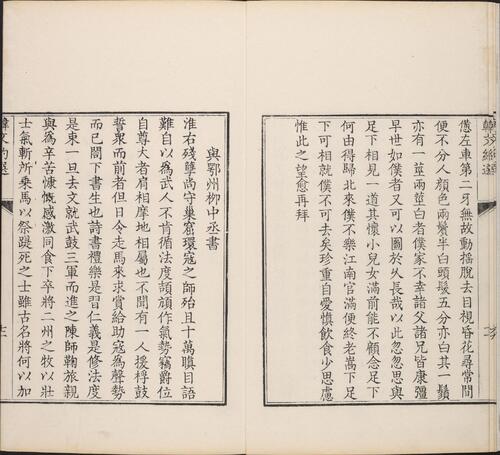 憊左車第二牙無故動搖脫去目視昏花尋常間
便不分人顏色兩鬢半白頭髮五分亦白其一鬚
亦有一莖兩莖白者僕家不幸諸父諸兄皆康彊
早世如僕者又可以圖於久長哉以此忽忽思與
足下相見一道其懷小兒女滿前能不顧念足下
何由得歸北來僕不樂江南官滿便終老嵩下足
下可相就僕不可去矣珍重自愛慎飲食少思慮
惟此之望愈再拜
與鄂州柳中丞書
淮右殘孽尚守巢窟環寇之師殆且十萬瞋目語
難自以為武人不肯循法度頡頏作氣勢竊爵位
自尊大者肩相摩地相屬也不聞有一人援桴鼓
誓眾而前者但日令走馬來求賞給助寇為聲勢
而已閤下書生也詩書禮樂是習仁義是修法度
是束一旦去文就武鼓三軍而進之陳師鞠旅親
與為辛苦慷慨感激同食下卒將二州之牧以壯
士氣斬所乘馬以祭踶死之士雖古名將何以加